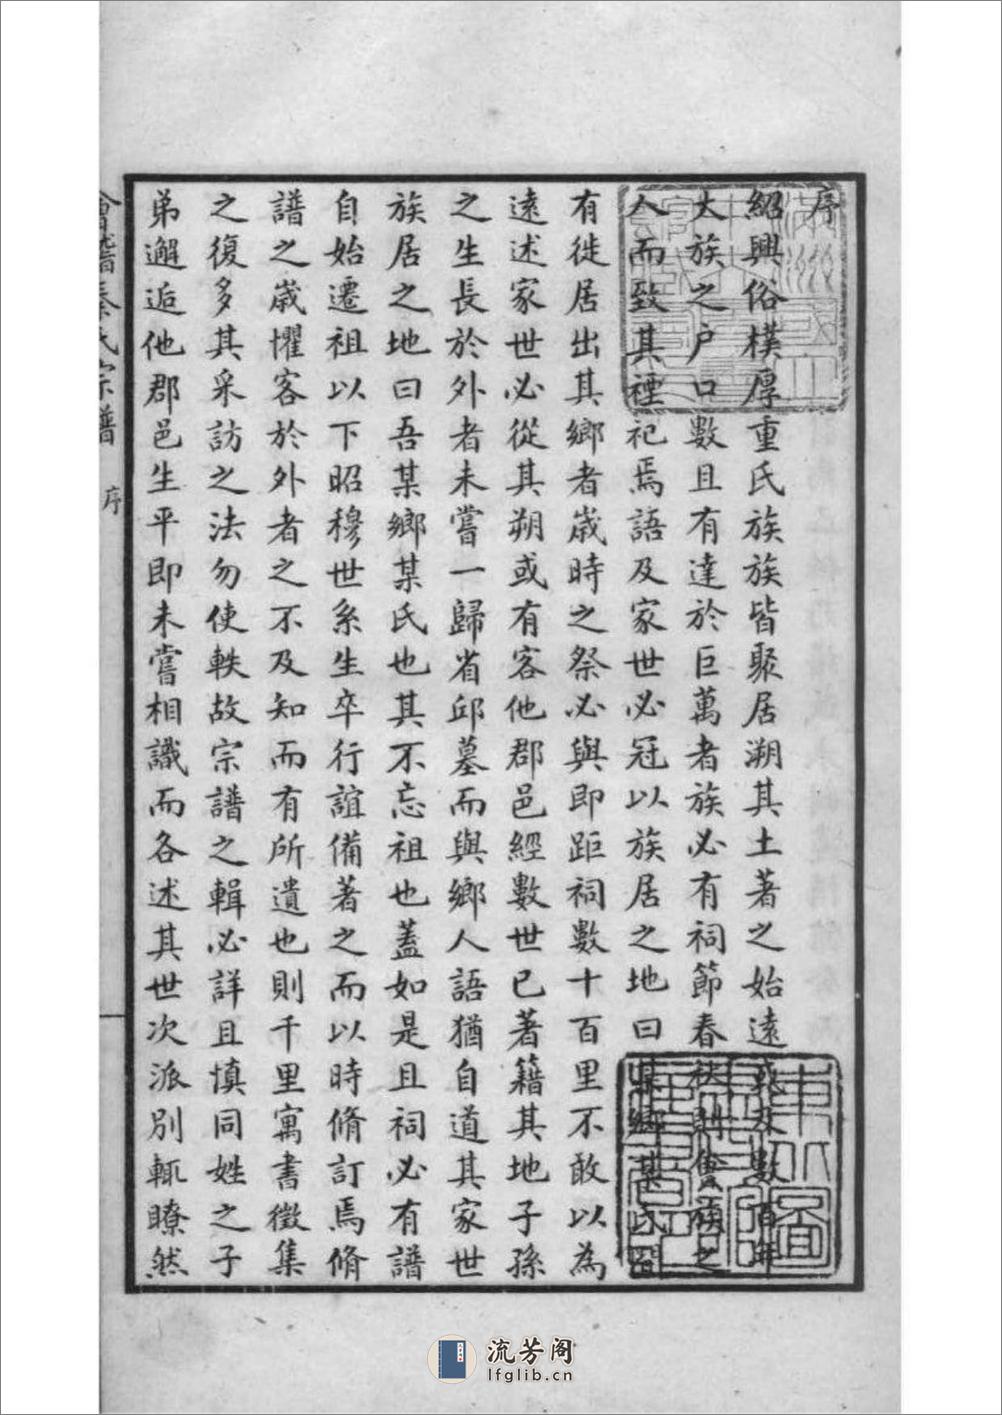 序
紹興俗樸厚重氏族族皆聚居溯其土著之始遠或及數百年
大族之户口數且有達於巨萬者族必有祠節春秋則會族之
人而致其禋祀焉語及家世必冠以族居之地曰某鄉某氏間
有徙居出其鄉者歲時之祭必與即距祠數十百里不敢以為
遠述家世必從其朔或有客他郡邑經數世已著籍其地子孫
之生長於外者未嘗一歸省邱墓而與鄉人語猶自道其家世
族居之地曰吾某鄉某氏也其不忘祖也蓋如是且祠必有譜
自始遷祖以下昭穆世系生卒行誼備著之而以時脩訂焉脩
譜之歲懼客於外者之不及知而有所遺也則千里寓書徵集
之復多其采訪之法勿使軼故宗譜之輯必詳且慎同姓之子
弟邂逅他郡邑生平即未嘗相識而各述其世次派別輒瞭然
會稽秦氏宗譜 序
流芳阁
lfglib.cn